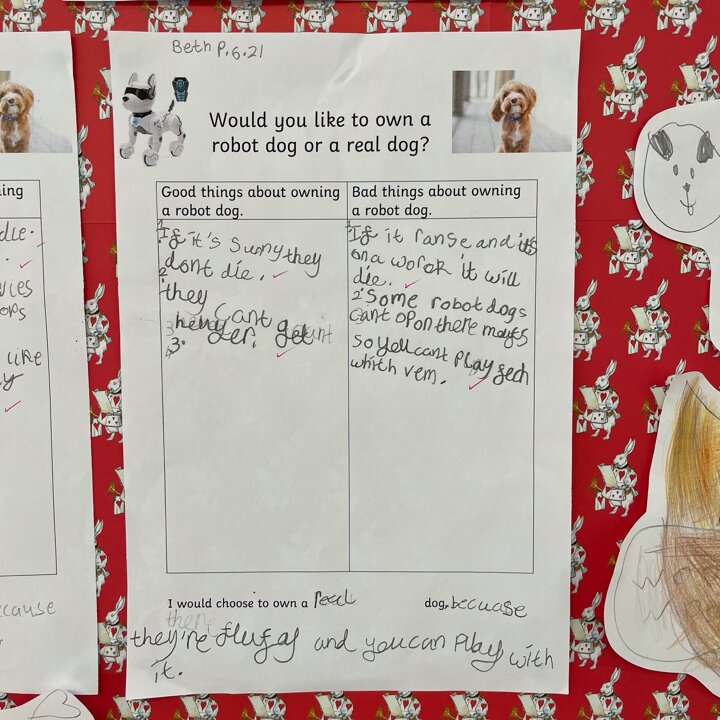 Beth P.6.21
Would you like to own a
robot dog or a real dog?
Good things about owning
a robot dog.
1. If it's suny they
dont die.
2. they
cant get
hunger.
3.
Bad things about owning
a robot dog.
1. If it ranse and it's
on a worck it will
die.
2. Some robot dogs
cant opon there mayts
so you cant play fech
whith vem.
I would choose to own a reall dog, becuase
they're flufay and you can play with
it.
die.
like
ecause